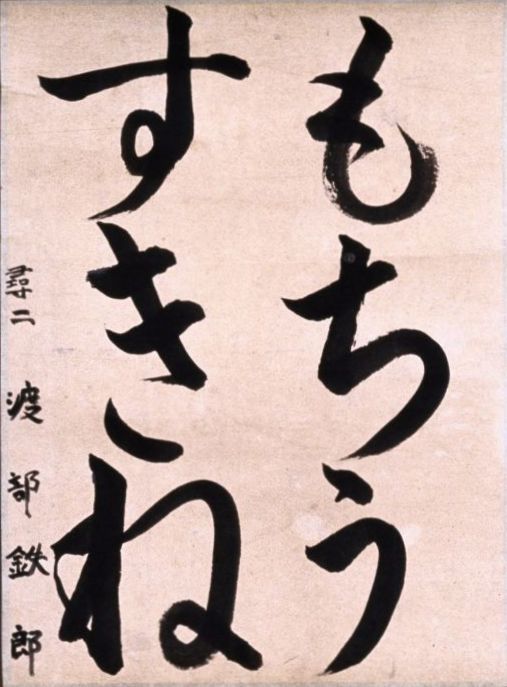 もちう
すきね
尋二 渡部鉄郎